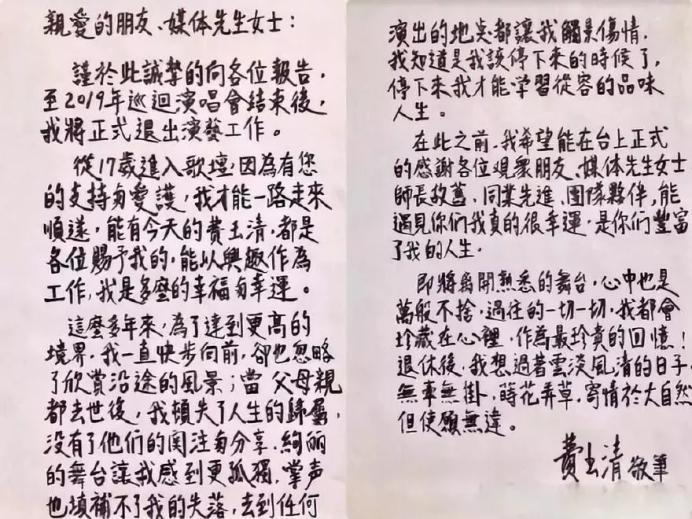 親愛的朋友、媒体先生女士：
謹於此誠摯的向各位報告，
至2019年巡迴演唱會結束後，
我將正式退出演藝工作。
從17歲進入歌壇，因為有您
的支持与愛護，我才能一路走來
順遂，能有今天的費玉清，都是
各位賜予我的，能以興趣作為
工作，我是多麼的幸福与幸運。
這麼多年來，為了達到更高的
境界，我一直快步向前，卻也忽略
了欣賞沿途的風景；當父母親
都去世後，我頓失了人生的歸屬，
没有了他們的関注与分享，絢丽
的舞台讓我感到更孤獨，掌声
也填補不了我的失落，去到任何
演出的地点都讓我觸景傷情，
我知道是我該停下來的時候了，
停下來我才能学習從容的品味
人生。
在此之前，我希望能在台上正式
的感謝各位观衆朋友、媒体先生女士
師長故舊、同業先進、團隊夥伴，能
遇見你們我真的很幸運，是你們豐富
了我的人生。
即將離開熟悉的舞台，心中也是
萬般不捨，過往的一切一切，我都會
珍藏在心裡，作為最珍貴的回憶！
退休後，我想過著雲淡風清的日子，
無牽無掛，時花弄草，寄情於大自然
但使願無違。
費玉清 敬筆